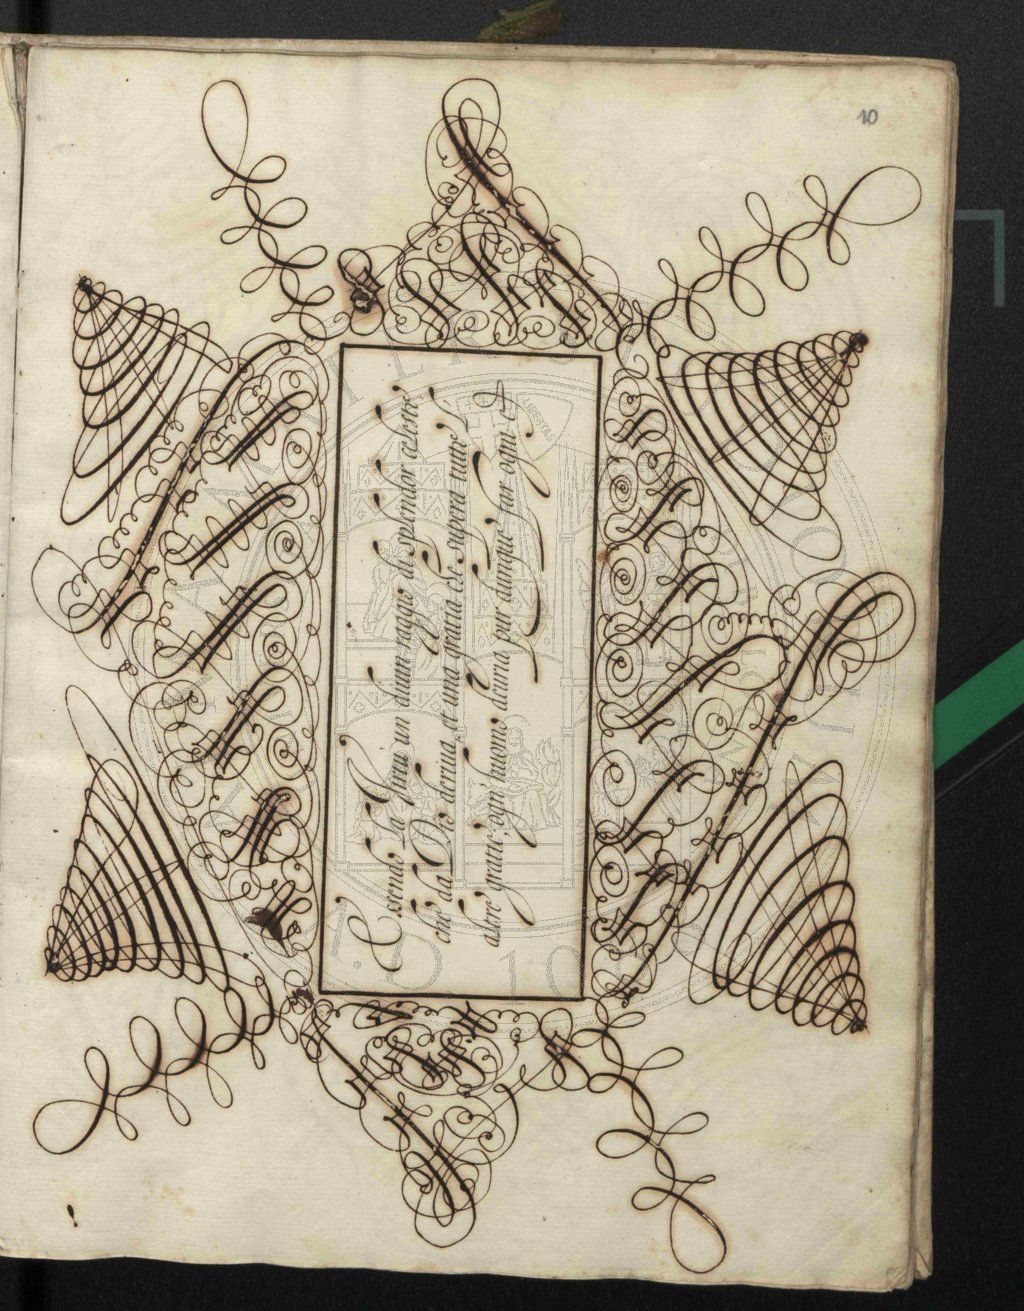 10
Essendo la Virtu un divin raggio di splendor celeste
che da Dio deriva, et una gratia che supera tutte l'
altre gratie; ogni huomo dovria pur dunque far ogni
LIBERTAS